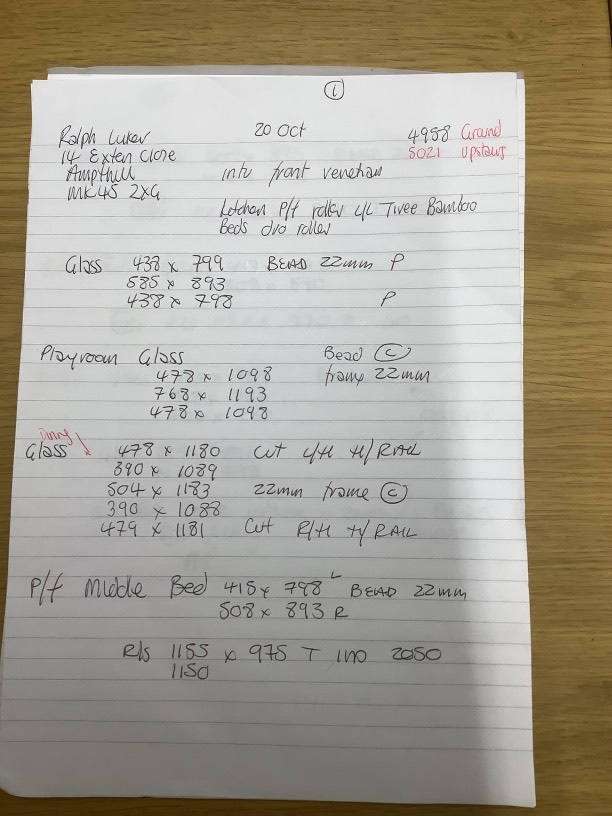 1
Ralph Luker 20 Oct 4958 Ground
14 Exten Close 5021 Upstairs
Ampthill into front venetian
MK45 2XG
Kitchen P/f roller c/c Tivee Bamboo
Beds dvo roller
Glass 438 x 799 BEAD 22mm P
585 x 893
438 x 798 P
Playroom Glass Bead C
478 x 1098 frame 22mm
768 x 1193
478 x 1098
Dining
Glass 478 x 1180 Cut L/H H/RAIL
390 x 1089
504 x 1183 22mm frame C
390 x 1088
479 x 1181 Cut R/H H/RAIL
P/f Middle Bed 415 x 798 L BEAD 22mm
508 x 893 R
R/s 1155 x 975 T 2050
1150